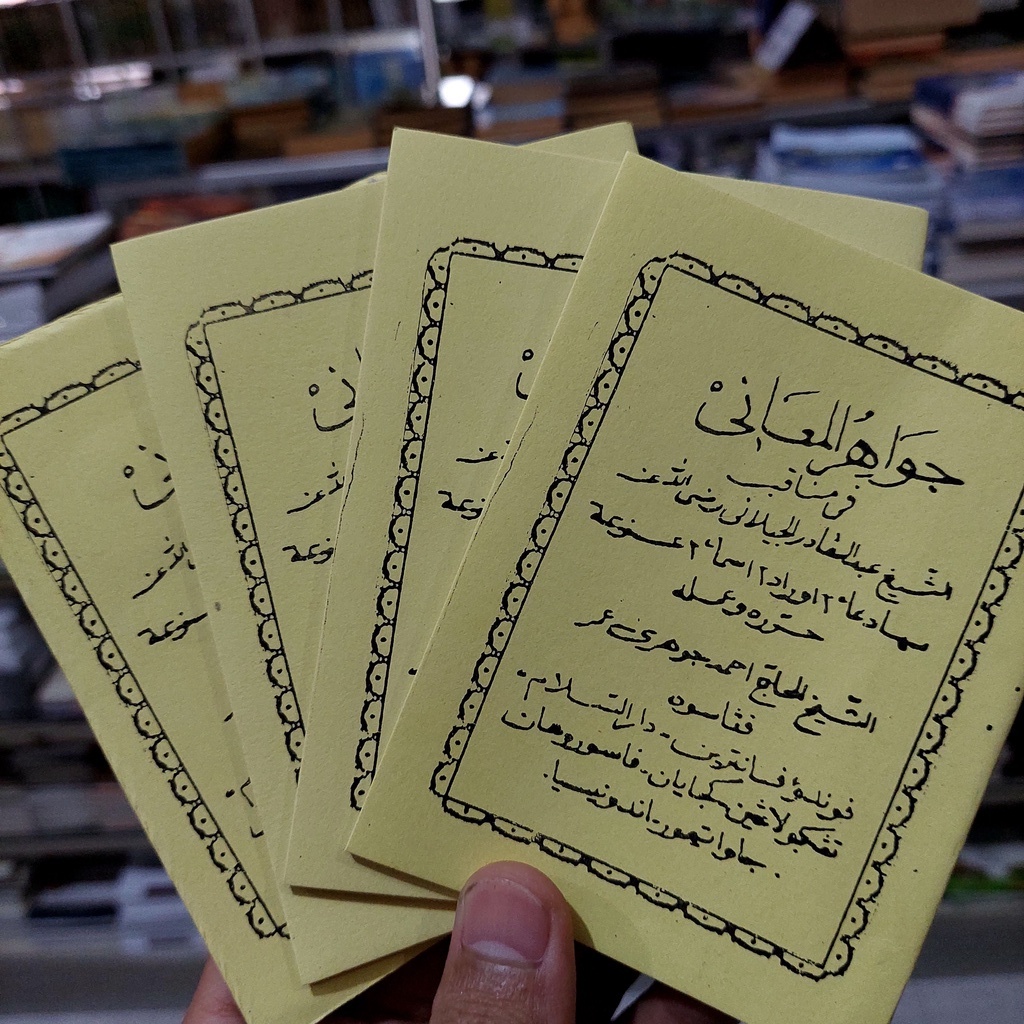 جَوَاهِرُ الْمَعَانِيْ
فى مناقب
الشّيخ عبد القادر الجيلانى رضى الله عنه
سهادعاء٢ اوراد٢ اسماء٢
حرّره وعمله
الشّيخ الحاجّ احمد جوهرى عمر
ڤڠاسوه
ڤوندوء ڤسانترين - دار السّلام -
تڠكولاڠين - كجايان - ڤاسوروهان
جاوا تيمور - اندونيسيا.